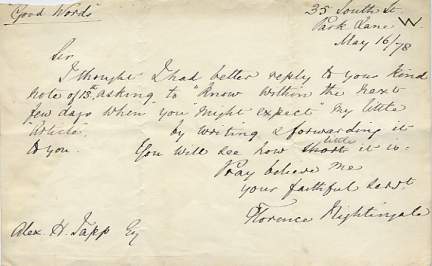 "Good Words"
35 South St.
Park Lane W
May 16/78
Sir
I thought I had better reply to your kind
note of 15th. asking to "know within the next
few days when you might expect" my little
"Article" by writing & forwarding it
to you. You will see how ~~short~~ little it is.
Pray believe me
your faithful servt
Florence Nightingale
Alex. H. Japp Esq